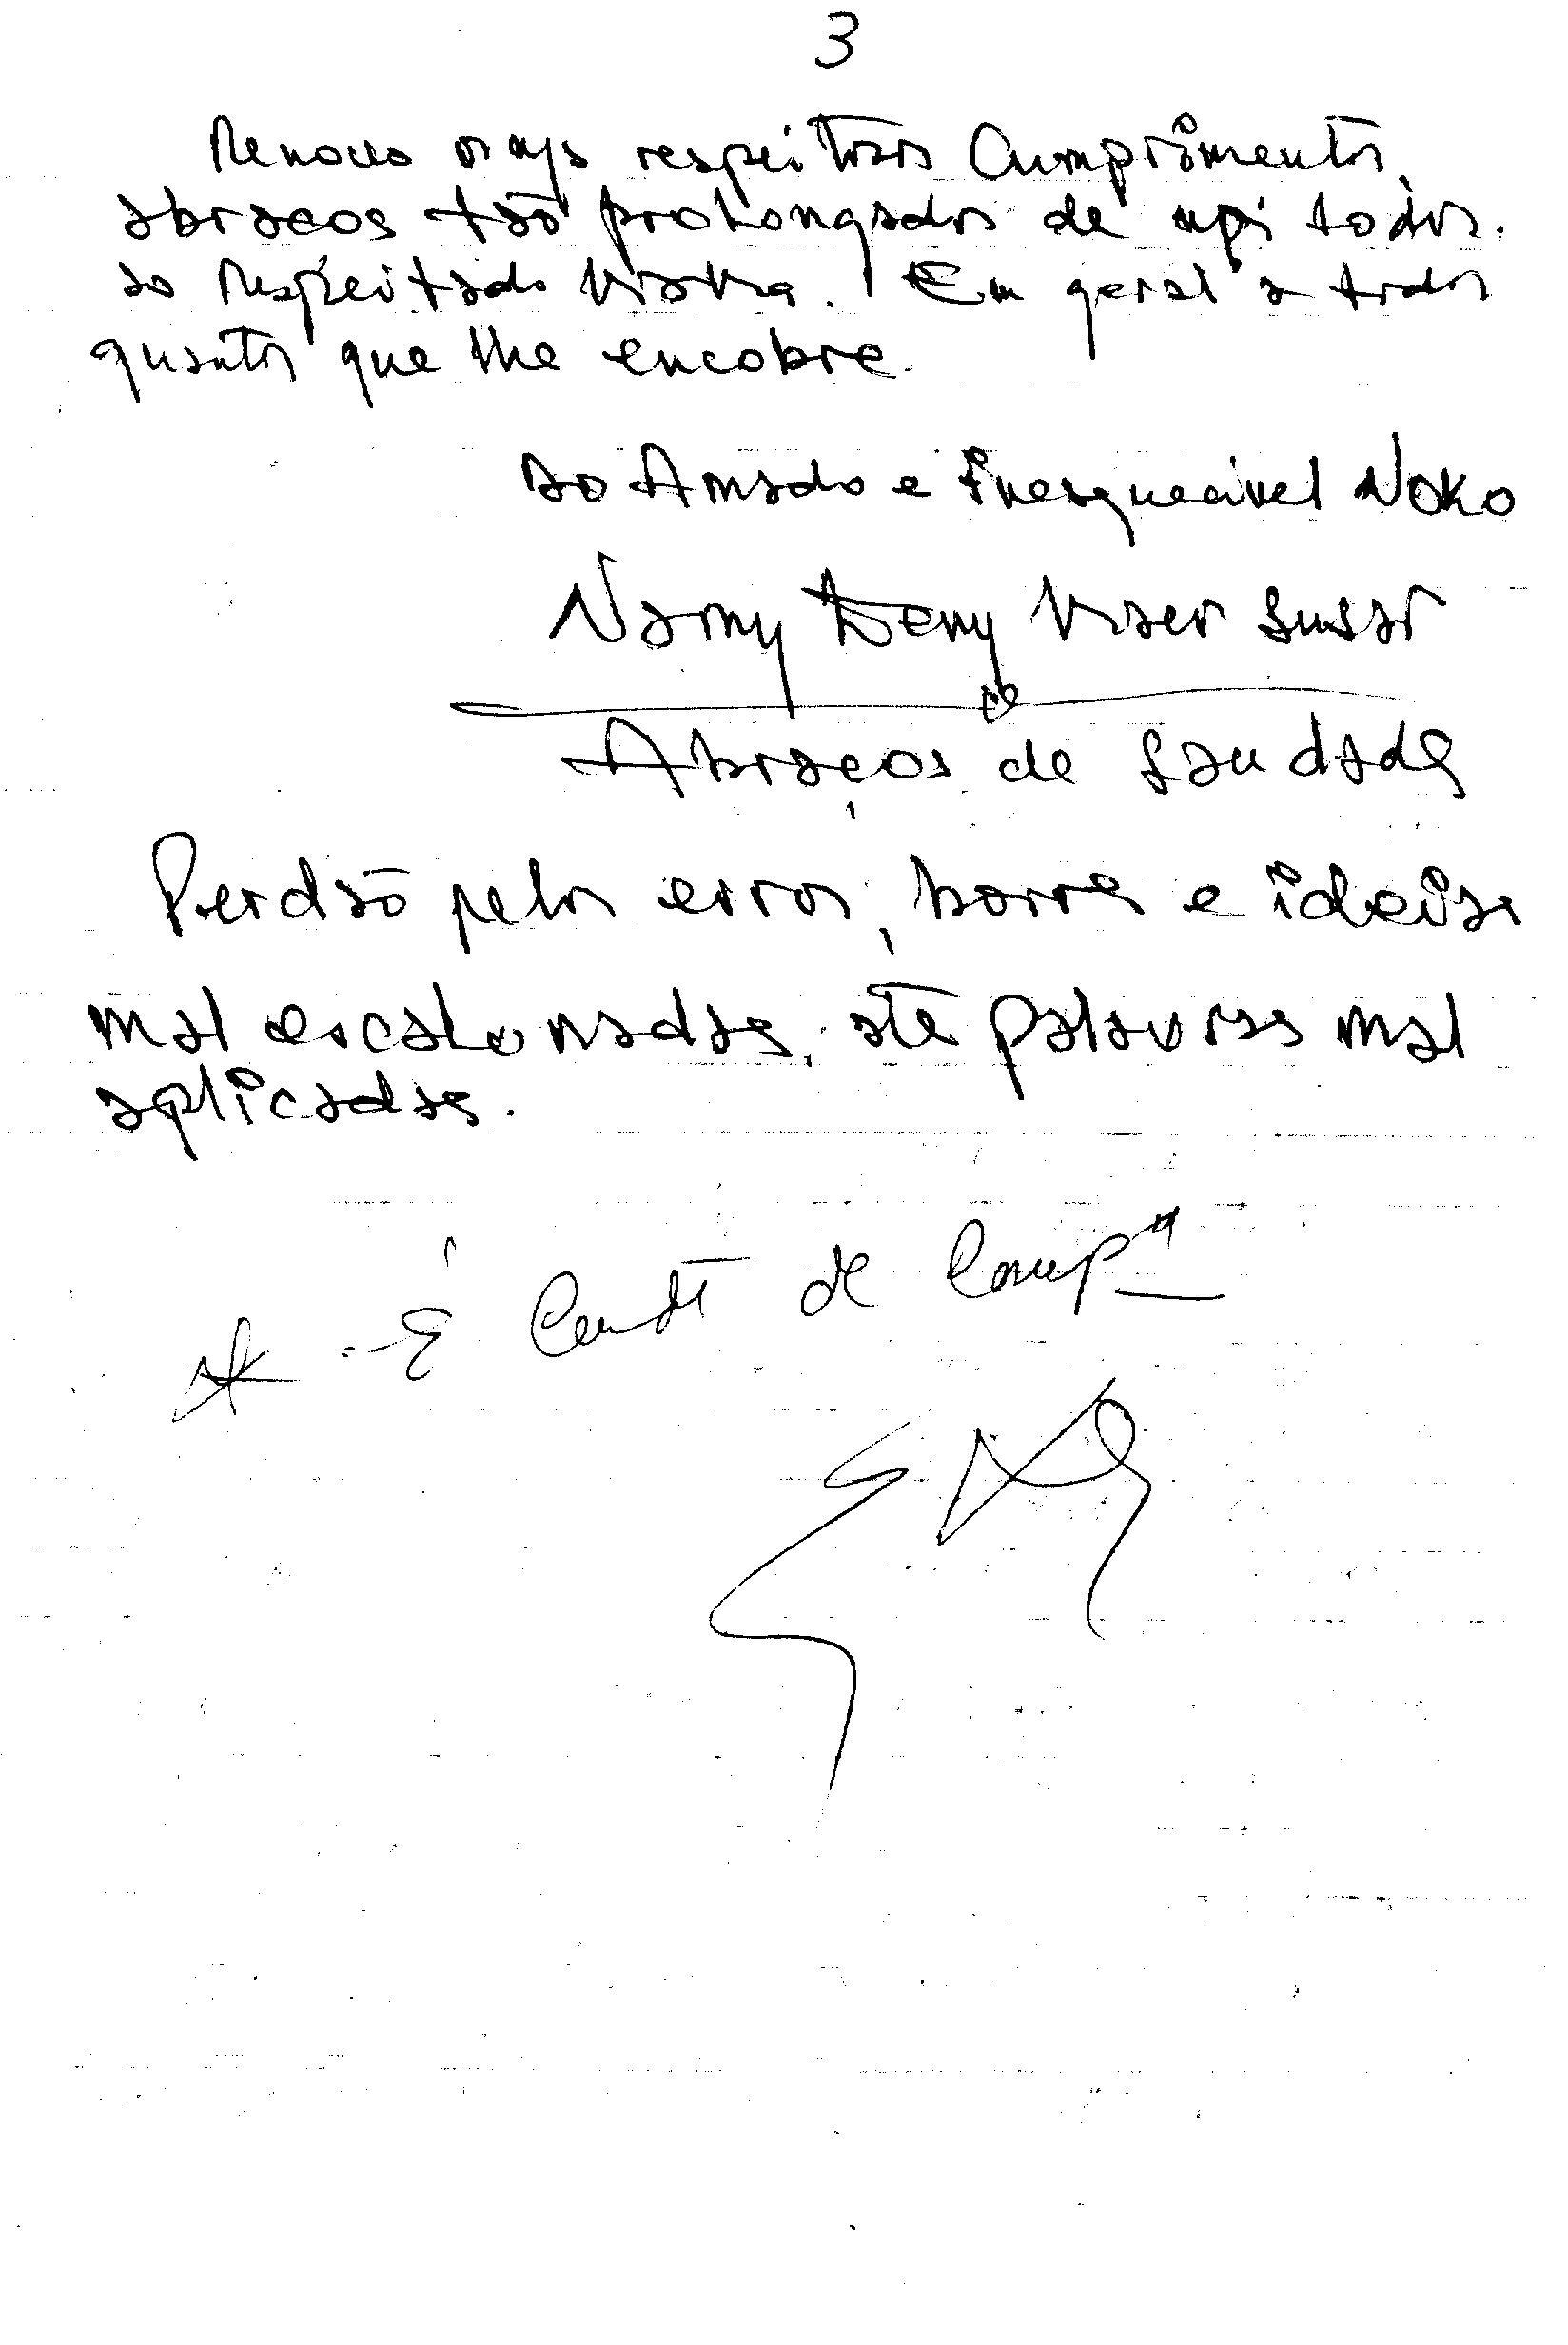 3
Renovo os mys respeitosos Cumprimentos,
abracos tão prolongados de npi todos.
ao Respeitado Em geral a todos
quantos que lhe encobre.
ao Amado e inesquecivel Noko
Namy Deny
Abraços de Saudade
Perdão pelos erros, borre e ideias
mal escalonadas, até palavras mal
aplicadas.
É de Camp.ª